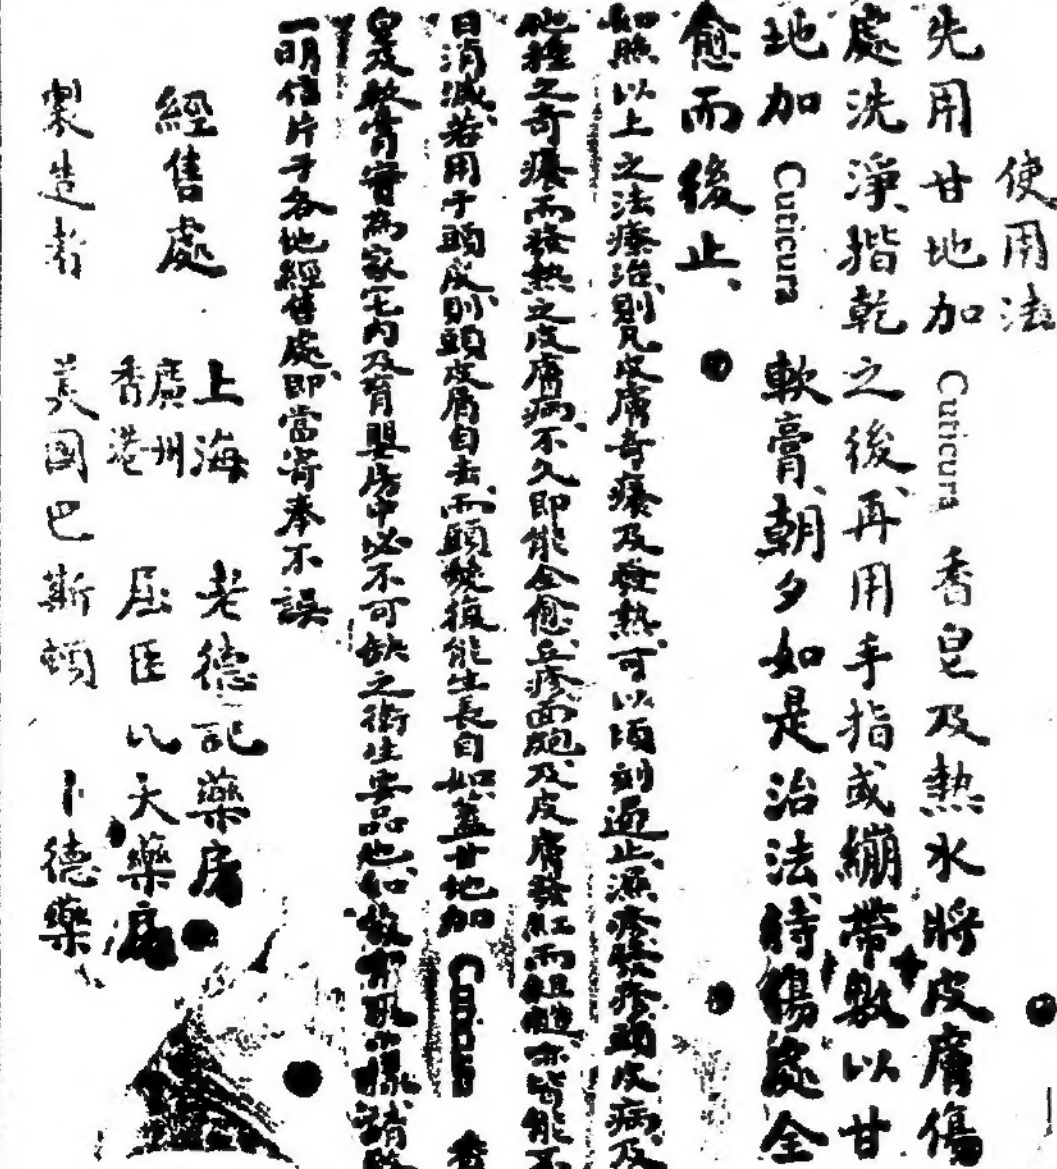 使用法
先用甘地加 Cuticura 香皂及熱水將皮膚傷
處洗淨揩乾之後、再用手指或繃帶敷以甘
地加 Cuticura 軟膏、朝夕如是治法、待傷處全
愈而後止、
如照以上之法療治、則凡皮膚奇癢及發熱、可以頃刻遏止、濕疹 疹頭皮病、及
他種之奇癢而發熱之皮膚病、不久即能全愈、丘疹面皰及皮膚發紅而粗糙、亦皆能不
日消滅、若用于頭皮、則頭皮屑自去、而頭髮復能生長自如、蓋甘地加 Cuticura 香
皂及軟膏實為家宅內及育嬰房中必不可缺之衛生要品也、如 樣 請
一明信片于各地經售處、即當寄奉不誤
經售處
上海 老德記藥房
廣州
香港 屈臣氏大藥房
製造者 美國巴斯頓 卜德藥